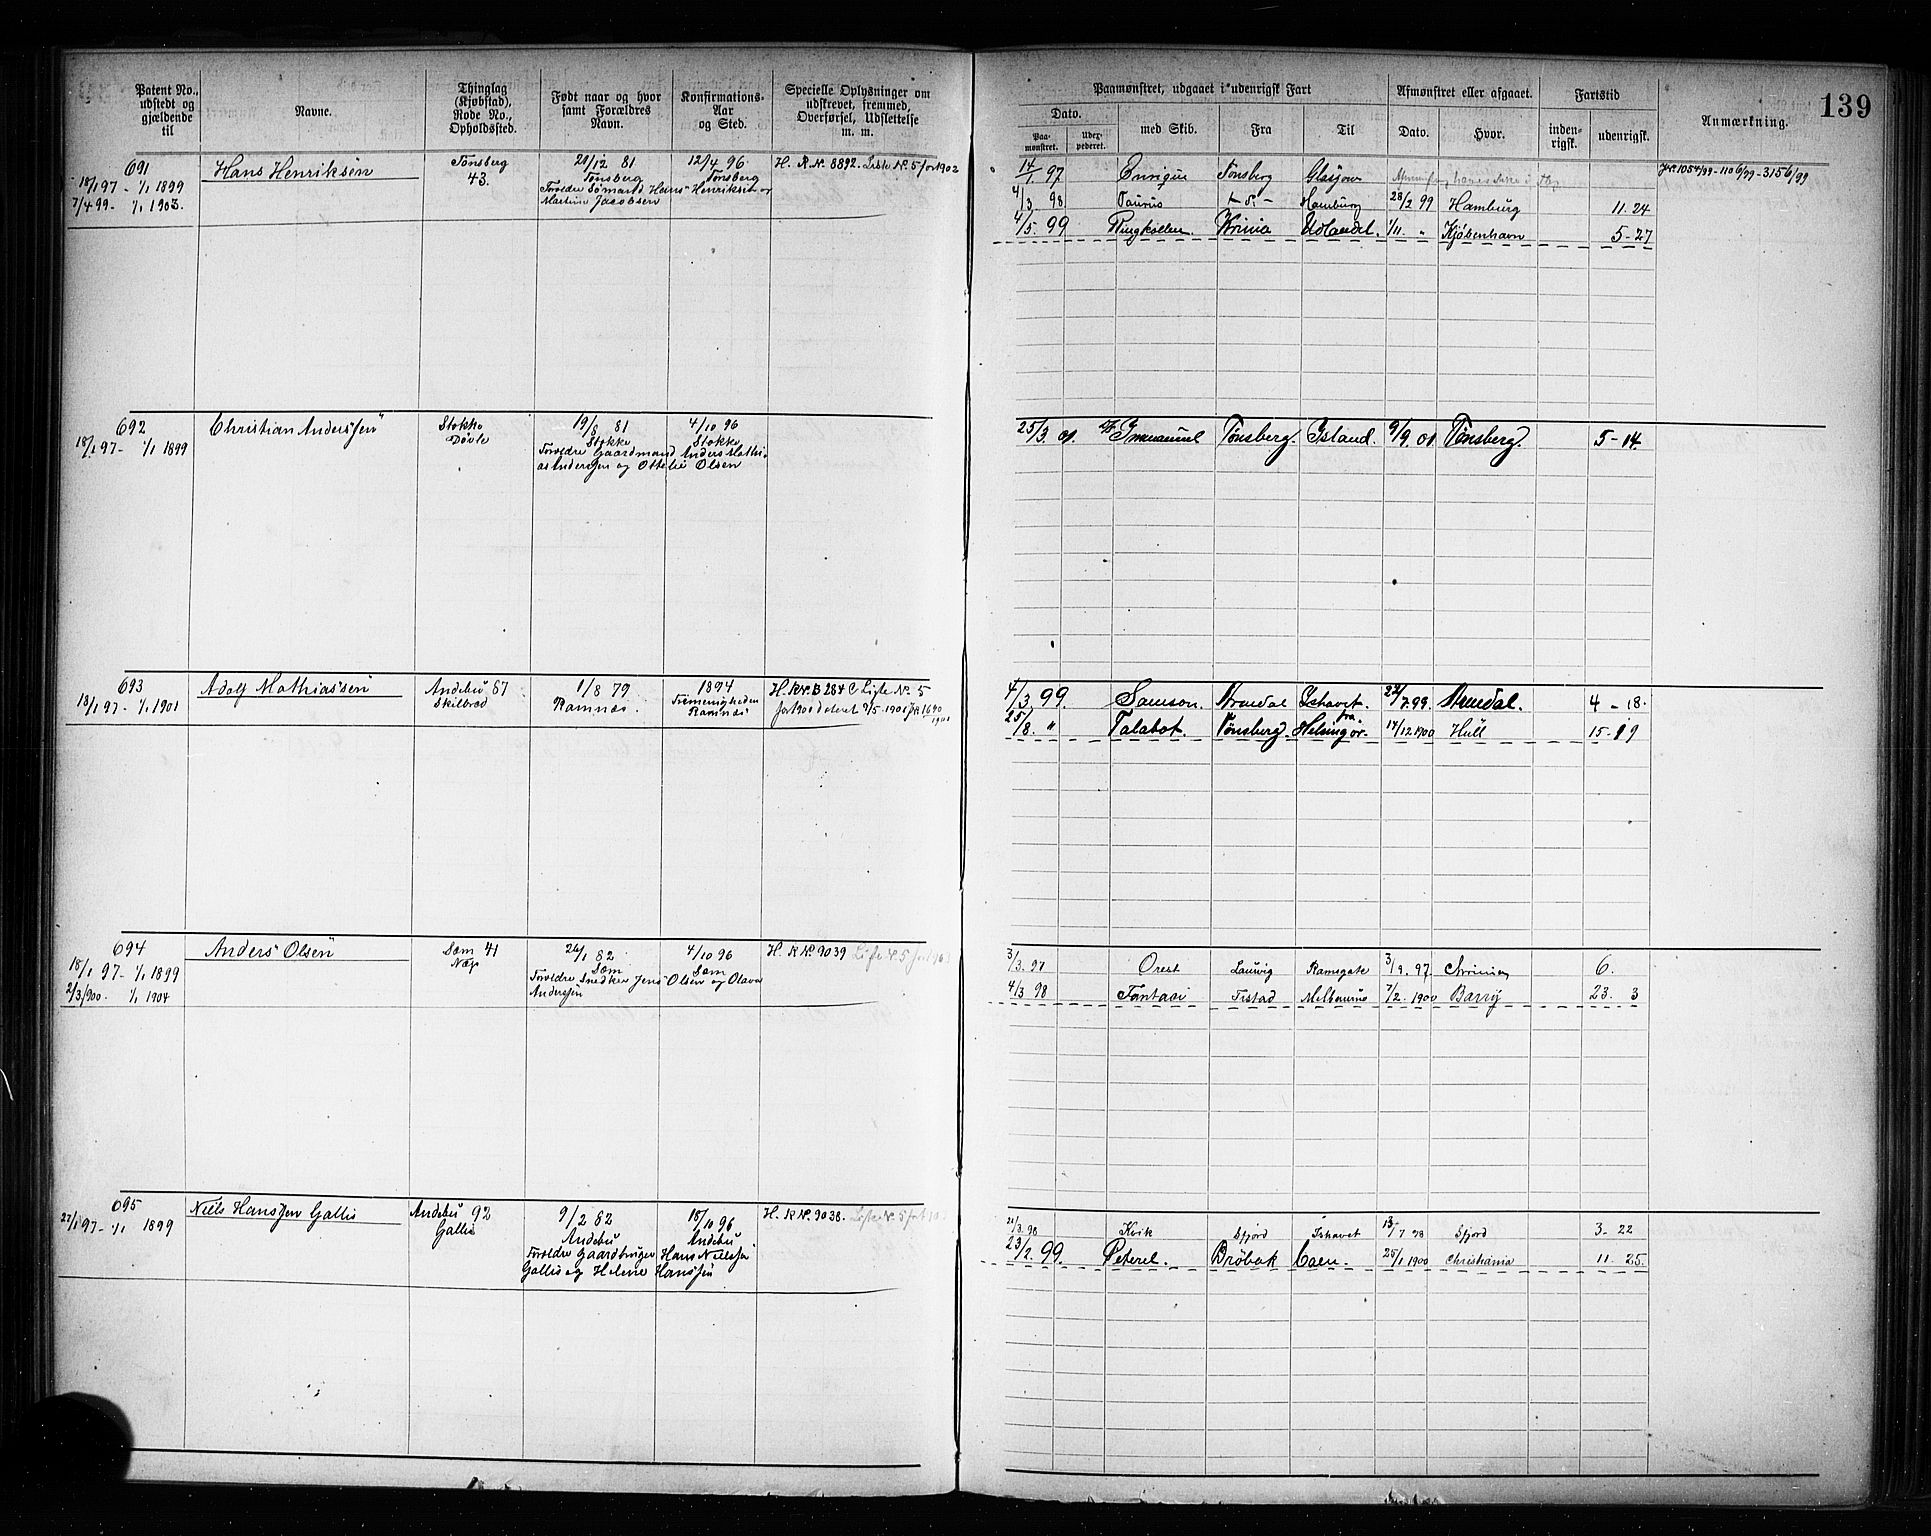 139
Patent No., udstedt og gjældende til
Navne.
Thinglag (Kjøbstad), Rode No., Opholdssted.
Født naar og hvor samt Forældres Navn.
Konfirmations-Aar og Sted.
Specielle Oplysninger om udskrevet, fremmed, Overførsel, Udslettelse m. m.
Paamønstret, udgaaet i udenrigsk Fart
Dato.
Paa-mønstret.
Uder-pederet.
med Skib.
Fra
Til
Afmønstret eller afgaaet.
Dato.
Hvor.
Fartstid
inden-rigsk.
udenrigsk.
Anmærkning.
691
18/1 97 - 1/1 1899
7/4 99 - 1/1 1903.
Hans Henriksen
Tønsberg
43.
21/12 81
Tønsberg
Forældre Sømand Hans Henriksen og
Martine Jacobsen
12/4 96
Tønsberg
H. R. N. 8892. Liste N. 5 for 1902
14/1 97 Enrique Tønsberg Glasgow
4/3 98 Taurus - S. - Hamburg 28/2 99 Hamburg 11. 24
4/5. 99 Ringkollen. Krinia Udlandet. 1/11. " Kjøbenhavn 5 - 27
Jr. 1054/99 - 1106/99 - 3156/99
692
18/1 97 - 1/1 1899
Christian Anderssen
Stokke
Døvle
19/8 81
Stokke
Forældre Gaardmand Anders Mathi-
as Anderssen og Ottelie Olsen
4/10 96
Stokke
25/3. 01. Immanuel Tønsberg. Island. 9/9. 01 Tønsberg. 5 - 14.
693
18/1 97 - 1/1 1901
Adolf Mathiassen
Andebu 87
Skilbred
1/8 79
Ramnæs.
1894
Frimenigheden
Ramnæs
H. R. Nr. B 284 C Liste N. 5
for 1900 dateret 2/5 1901 Jr 1640
1901
4/3 99. Samson. Arendal Ishavet. 22/7. 99. Arendal. 4 - 18.
25/8. " Talabot. Tønsberg Helsingør. 14/12 1900 Hull 15 - 19
fra
694
18/1 97 - 1/1 1899
2/3 900. 1/1 1904
Anders Olsen
Sæm 41
Næs
26/1 82
Sæm
Forældre Snedker Jens Olsen og Olava
Anderssen
4/10 96
Sæm
H. R N. 9039 Liste N. 5 for 1903
3/3. 97 Orest Laurvig Ramsgate 3/9. 97 6.
4/3 98 Fantasi Fistad Melbourne 7/2. 1900 Barry 23. 3
695
27/1 97 - 1/1 1899
Niels Hanssen Gallis
Andebu 92
Gallis
9/2 82
Andebu
Forældre Gaardbruger Hans Nielssen
Gallis og Helene Hanssen
18/10 96
Andebu
H. R N. 9038.
21/3. 98 Kvik Sfjord Ishavet 13/7 98 Sfjord 3 - 22
23/2. 99. Peterel. Drøbak Caen. 25/1 1900 Christiania 11. 25.